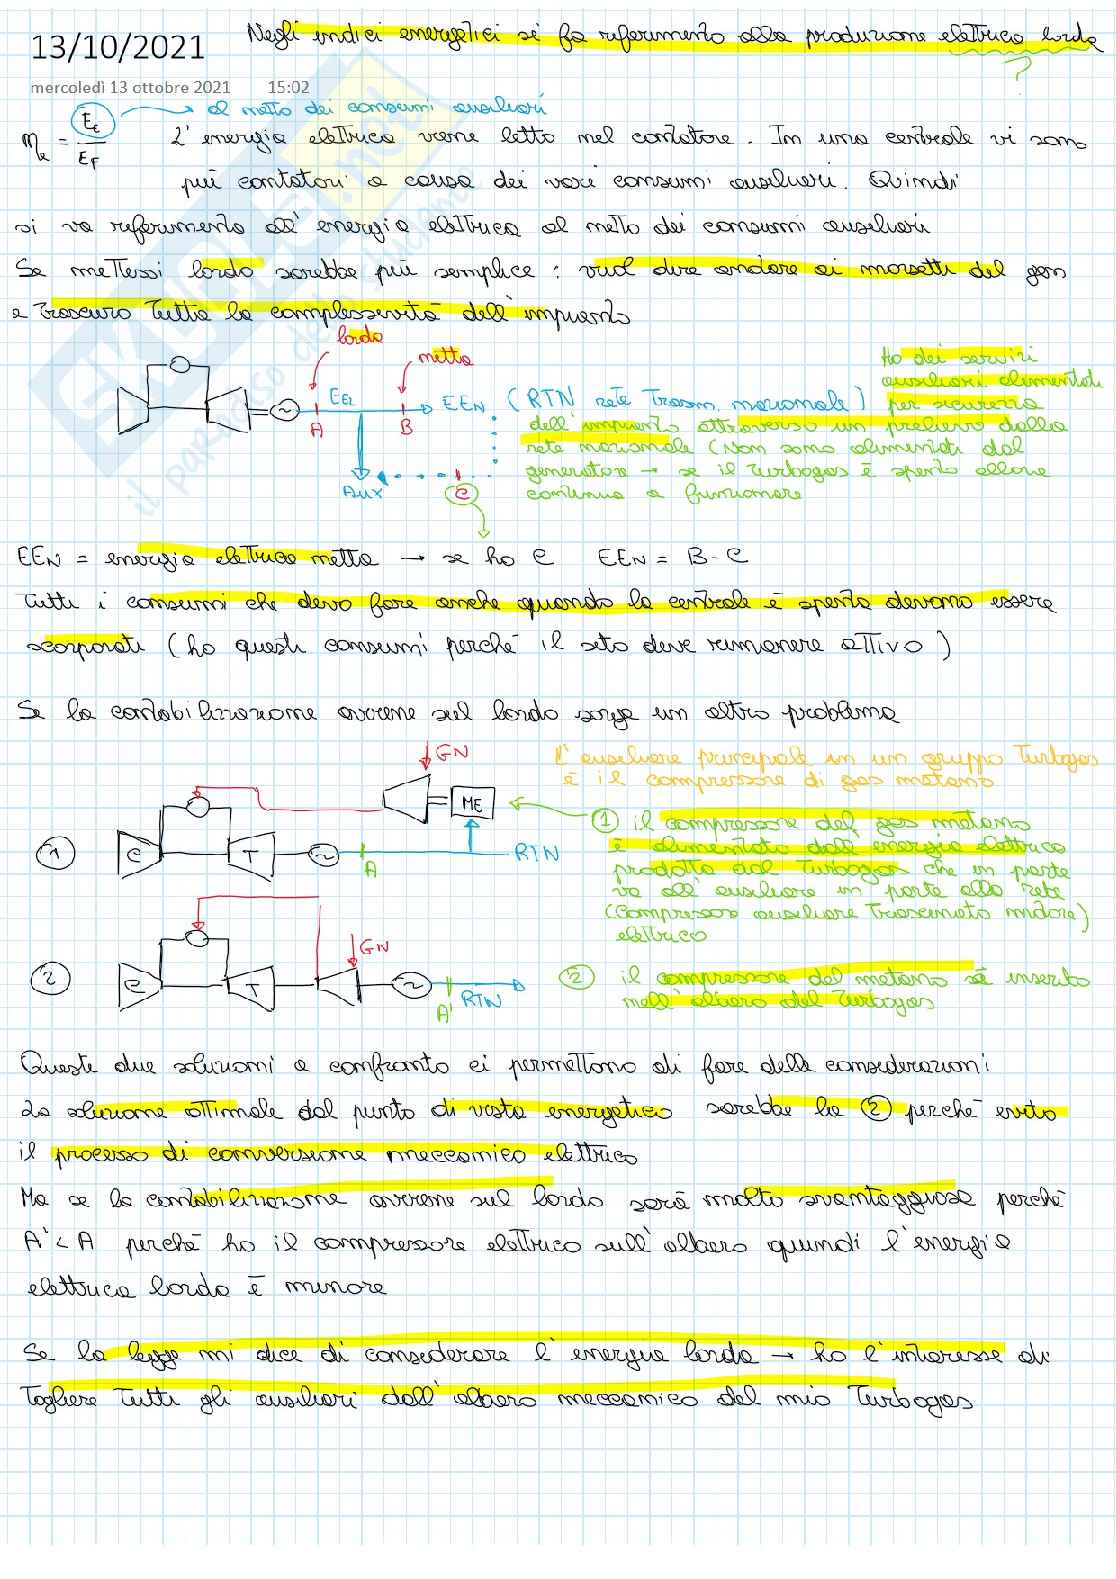 13/10/2021
Negli indici energetici si fa riferimento alla produzione elettrica lorda
?
mercoledì 13 ottobre 2021 15:02
al netto dei consumi ausiliari
η = E / E_F
L'energia elettrica viene letta nel contatore. In una centrale vi sono
più contatori a causa dei vari consumi ausiliari. Quindi
si va riferimento all'energia elettrica al netto dei consumi ausiliari
Se mettessi lordo sarebbe più semplice: vuol dire andare ai morsetti del gen
e trascuro tutta la complessività dell'impianto
lordo
netto
EEL
A
B
EEN (RTN rete Trasm. nazionale)
AUX
C
Ho dei servizi
ausiliari alimentati
per sicurezza
dell'impianto attraverso un prelievo dalla
rete nazionale (Non sono alimentati dal
generatore → se il turbogas è spento allora
continua a funzionare
EEN = energia elettrica netta → se ho C EEN = B - C
Tutti i consumi che devo fare anche quando la centrale è spenta devono essere
scorporati (ho questi consumi perché il sito deve rimanere attivo)
Se la contabilizzazione avviene sul lordo sorge un altro problema
GN
ME
1
C
T
A
RTN
L'ausiliare principale in un gruppo Turbogas
è il compressore di gas metano
1 il compressore del gas metano
è alimentato dall'energia elettrica
prodotta dal Turbogas che in parte
va all'ausiliare in parte alla rete
(Compressore ausiliare trascinato motore)
elettrico
GN
2
C
T
A'
RTN
2 il compressore del metano è inserito
nell'albero del turbogas
Queste due soluzioni a confronto ci permettono di fare delle considerazioni:
La soluzione ottimale dal punto di vista energetico sarebbe la 2 perché evito
il processo di conversione meccanico elettrico
Ma se la contabilizzazione avviene sul lordo sarà molto svantaggiosa perché
A' < A perché ho il compressore elettrico sull'albero quindi l'energia
elettrica lorda è minore
Se la legge mi dice di considerare l'energia lorda → ho l'interesse di
togliere tutti gli ausiliari dall'albero meccanico del mio Turbogas